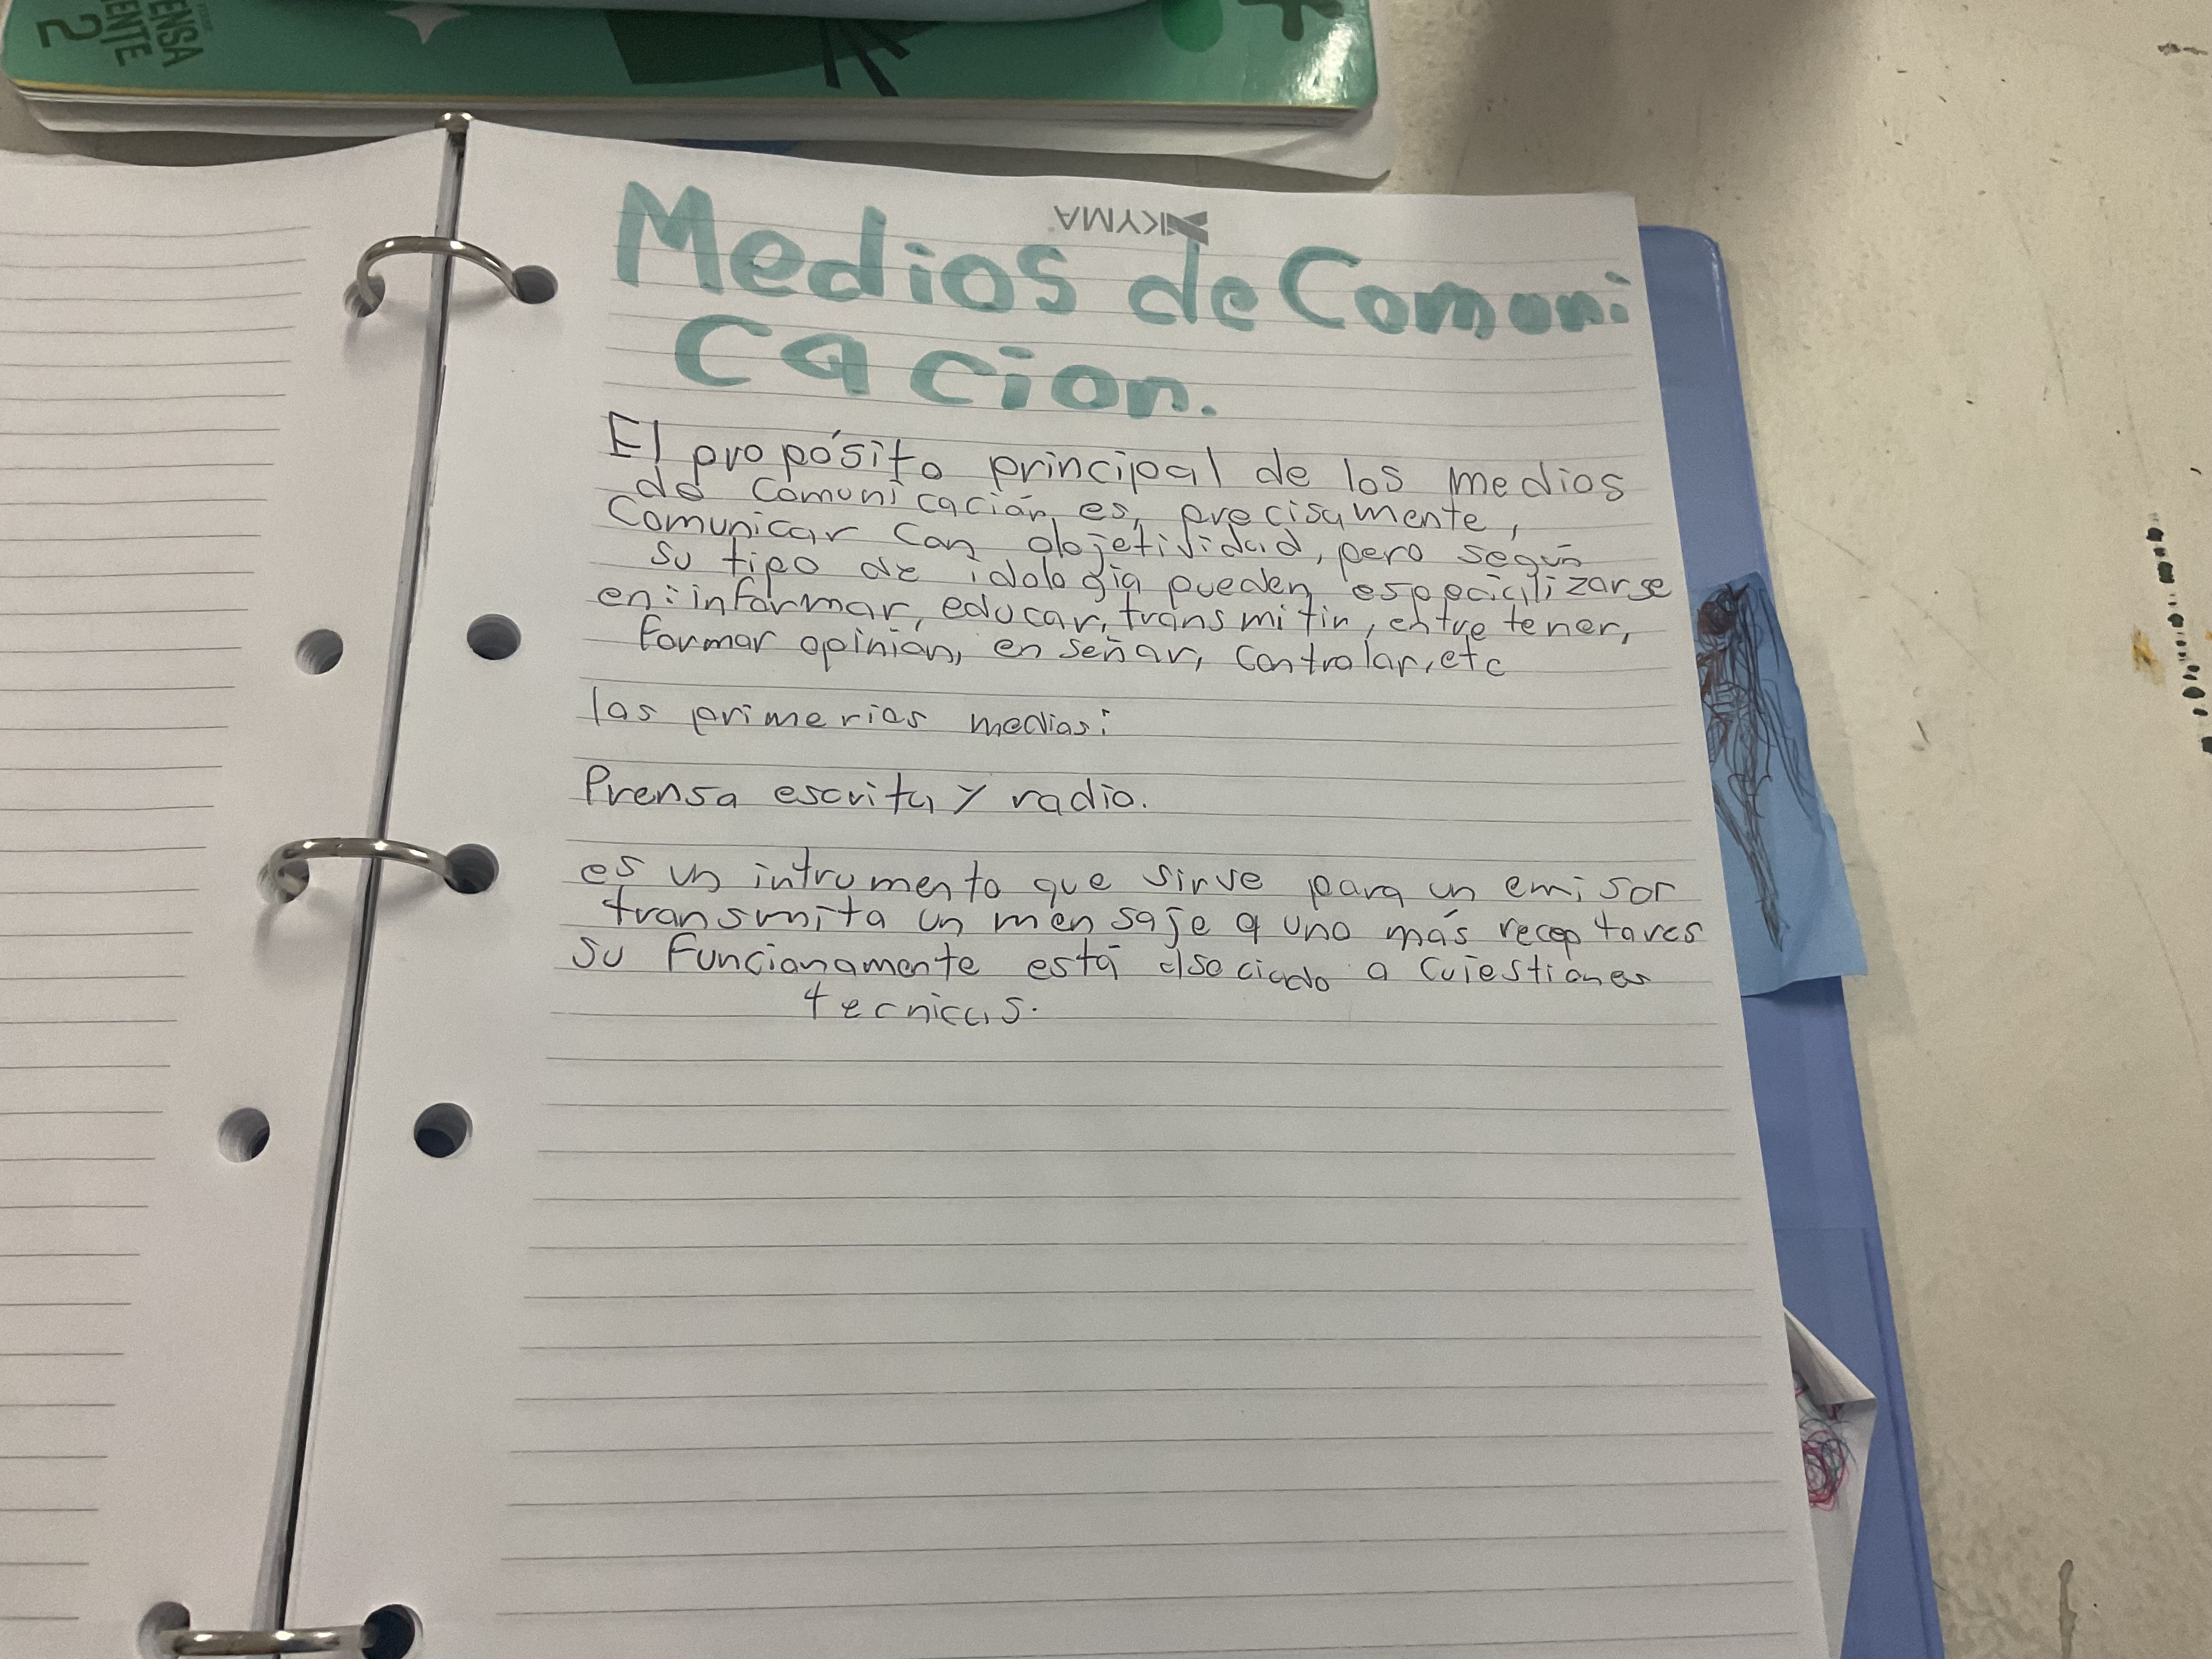 ENSA
ENTE
2
KYMA
Medios de Comuni
cacion.
El propósito principal de los medios
de comunicación es, precisamente,
comunicar con objetividad, pero según
su tipo de idología pueden especializarse
en: informar, educar, transmitir, entretener,
formar opinión, enseñar, controlar, etc
los primerios medios:
Prensa escrita y radio.
es un intrumento que sirve para un emisor
transmita un mensaje a uno más receptores
su funcionamente está asociado a cuiestiones
tecnicas.